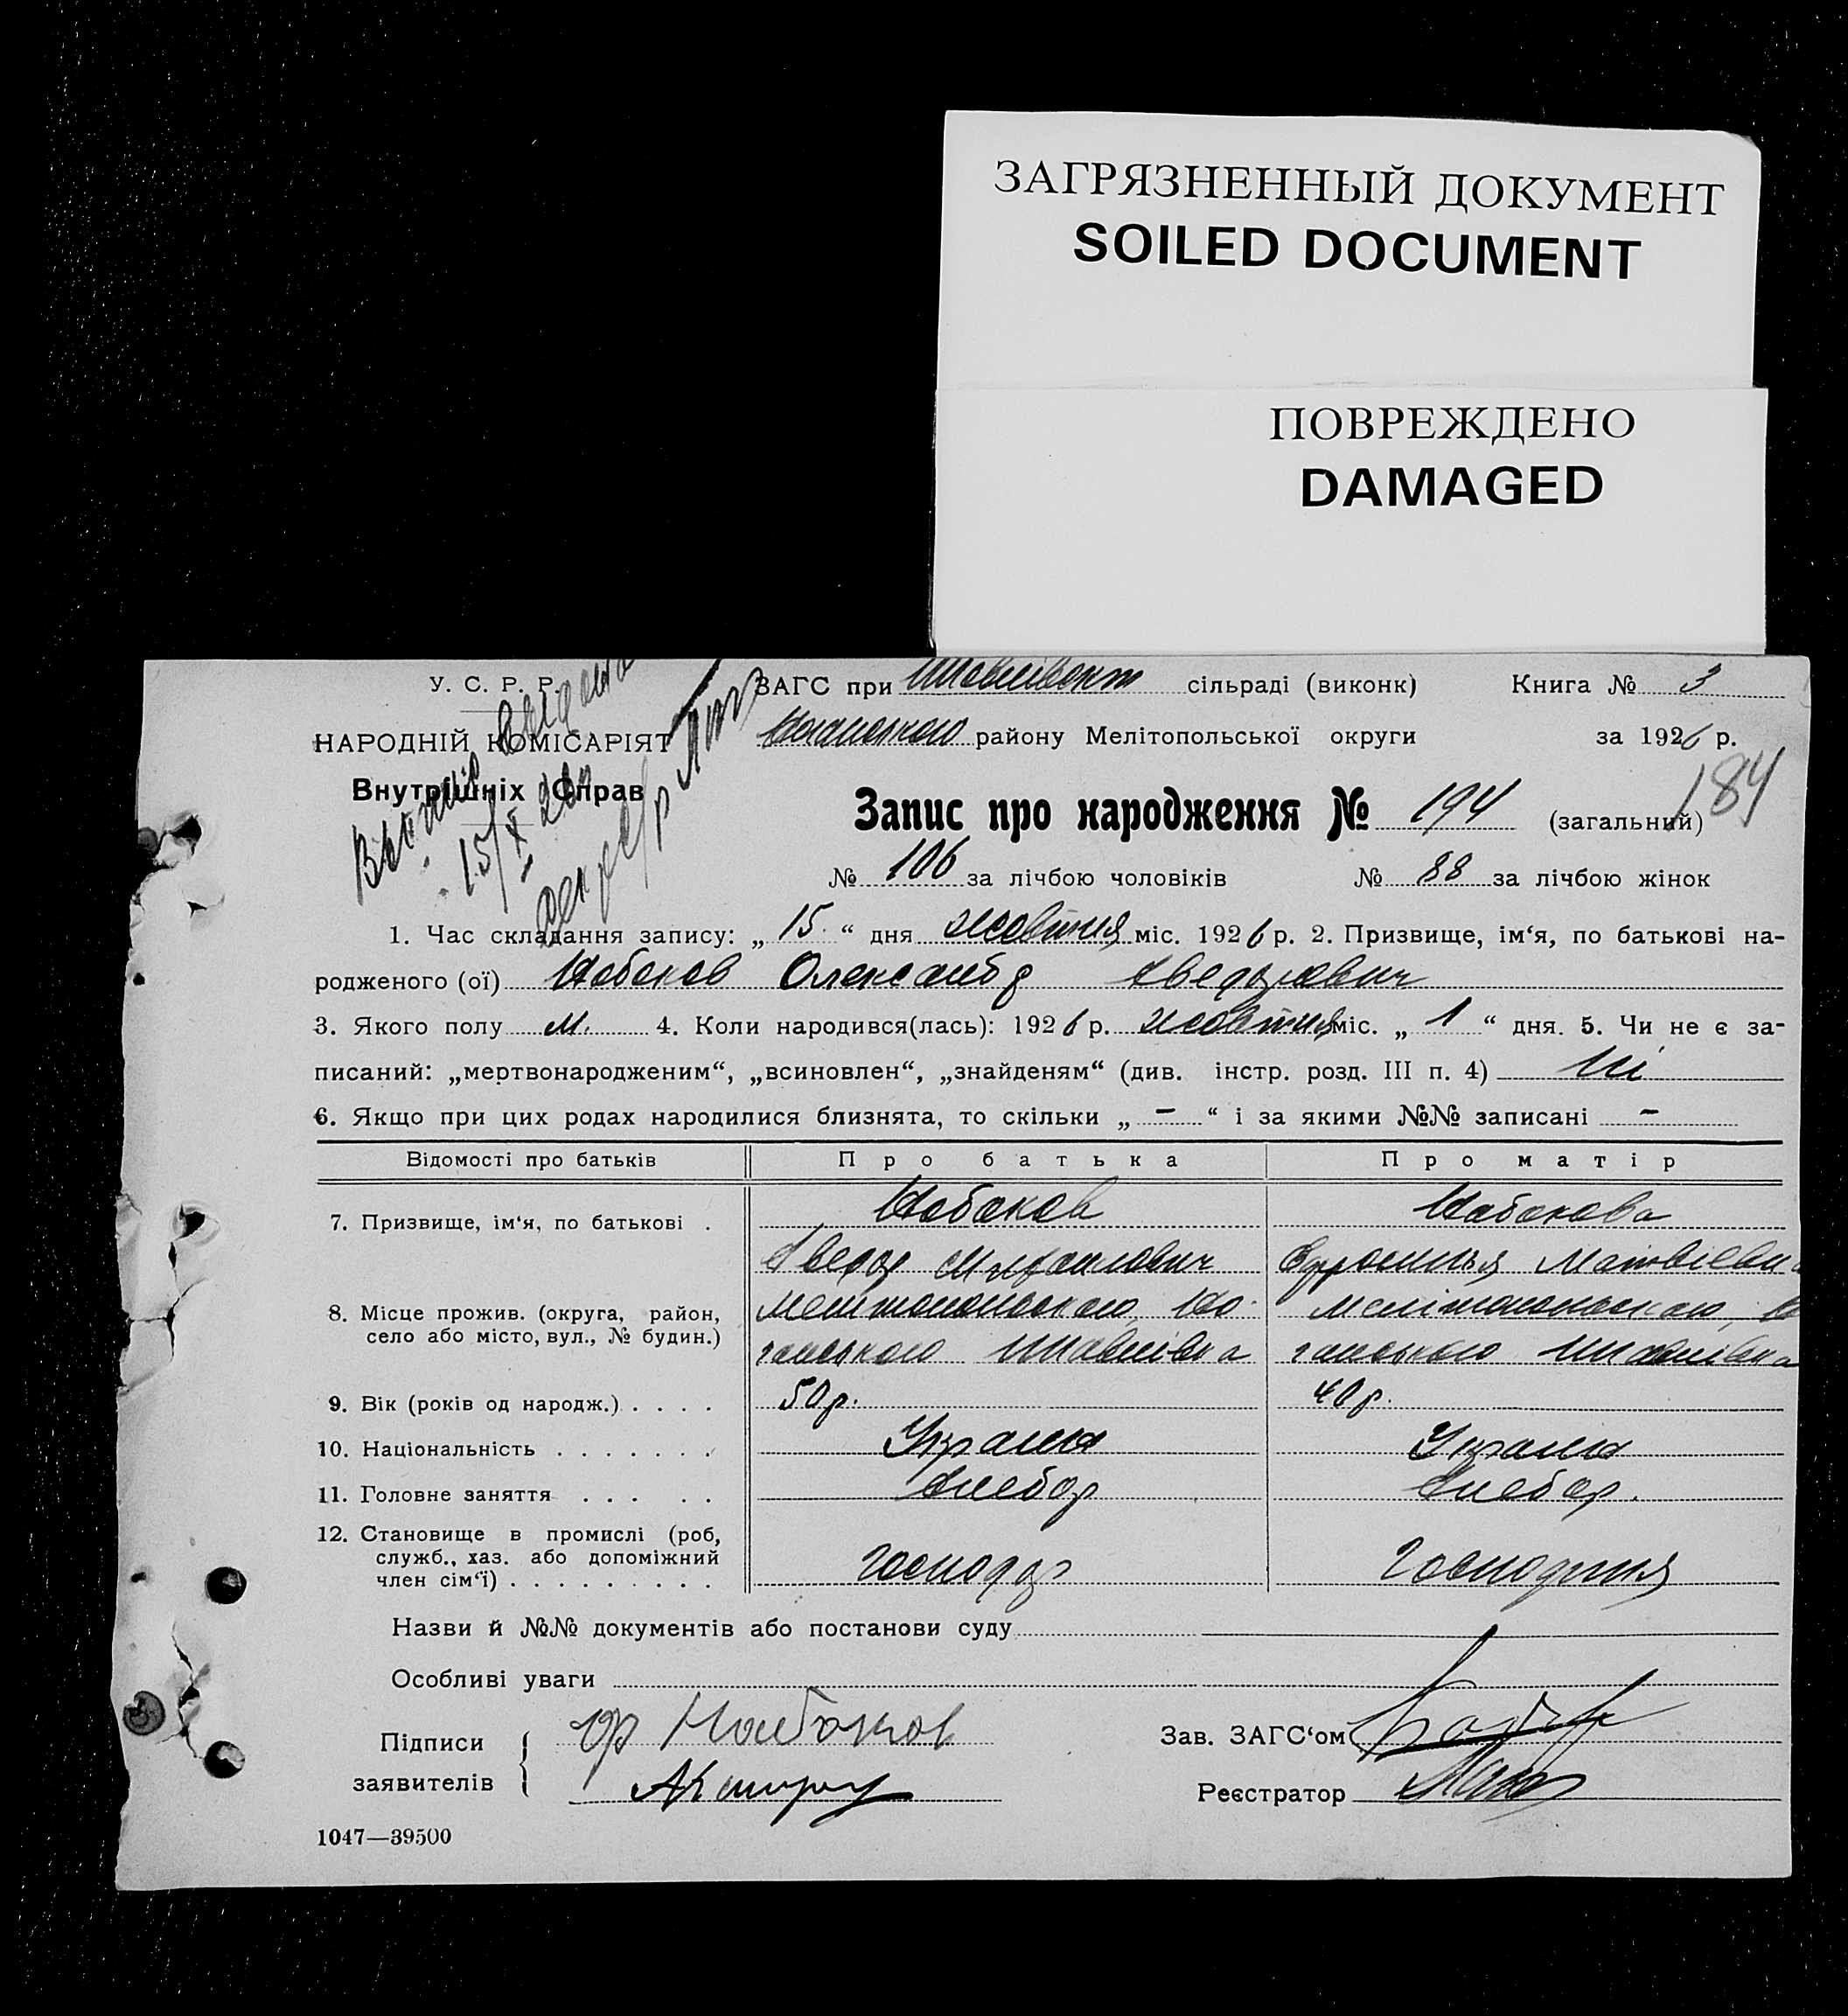 ЗАГРЯЗНЕННЫЙ ДОКУМЕНТ
SOILED DOCUMENT
ПОВРЕЖДЕНО
DAMAGED
У. С. Р. Р.
НАРОДНІЙ КОМІСАРІЯТ
Внутрішніх Справ
15/X 26
ЗАГС при сільраді (виконк) Книга № 3
району Мелітопольської округи за 1926 р.
184
Запис про народження № 194 (загальний)
№ 106 за лічбою чоловіків № 88 за лічбою жінок
1. Час складання запису: „ 15 “ дня жовтня міс. 1926 р. 2. Призвище, ім‘я, по батькові на-
родженого (ої) Набоков Олександр Хведорович
3. Якого полу м. 4. Коли народився(лась): 1926 р. жовтня міс. „ 1 “ дня. 5. Чи не є за-
писаний: „мертвонародженим“, „всиновлен“, „знайденям“ (див. інстр. розд. III п. 4) Ні
6. Якщо при цих родах народилися близнята, то скільки „ – “ і за якими №№ записані –
Відомості про батьків Про батька Про матір
7. Призвище, ім‘я, по батькові . Набоков Набокова
Хведор Михайлович Матвіевна
8. Місце прожив. (округа, район,
село або місто, вул., № будин.)
9. Вік (років од народж.) . . . . 50 р. 40 р.
10. Національність . . . . . . . Україн Україн
11. Головне заняття . . . . . Хлебор Хлебор.
12. Становище в промислі (роб,
служб., хаз. або допоміжний
член сім‘ї) . . . . . . . . . Господар Господиня
Назви й №№ документів або постанови суду
Особливі уваги
Підписи Набоков Зав. ЗАГС‘ом
заявителів Реєстратор
1047—39500